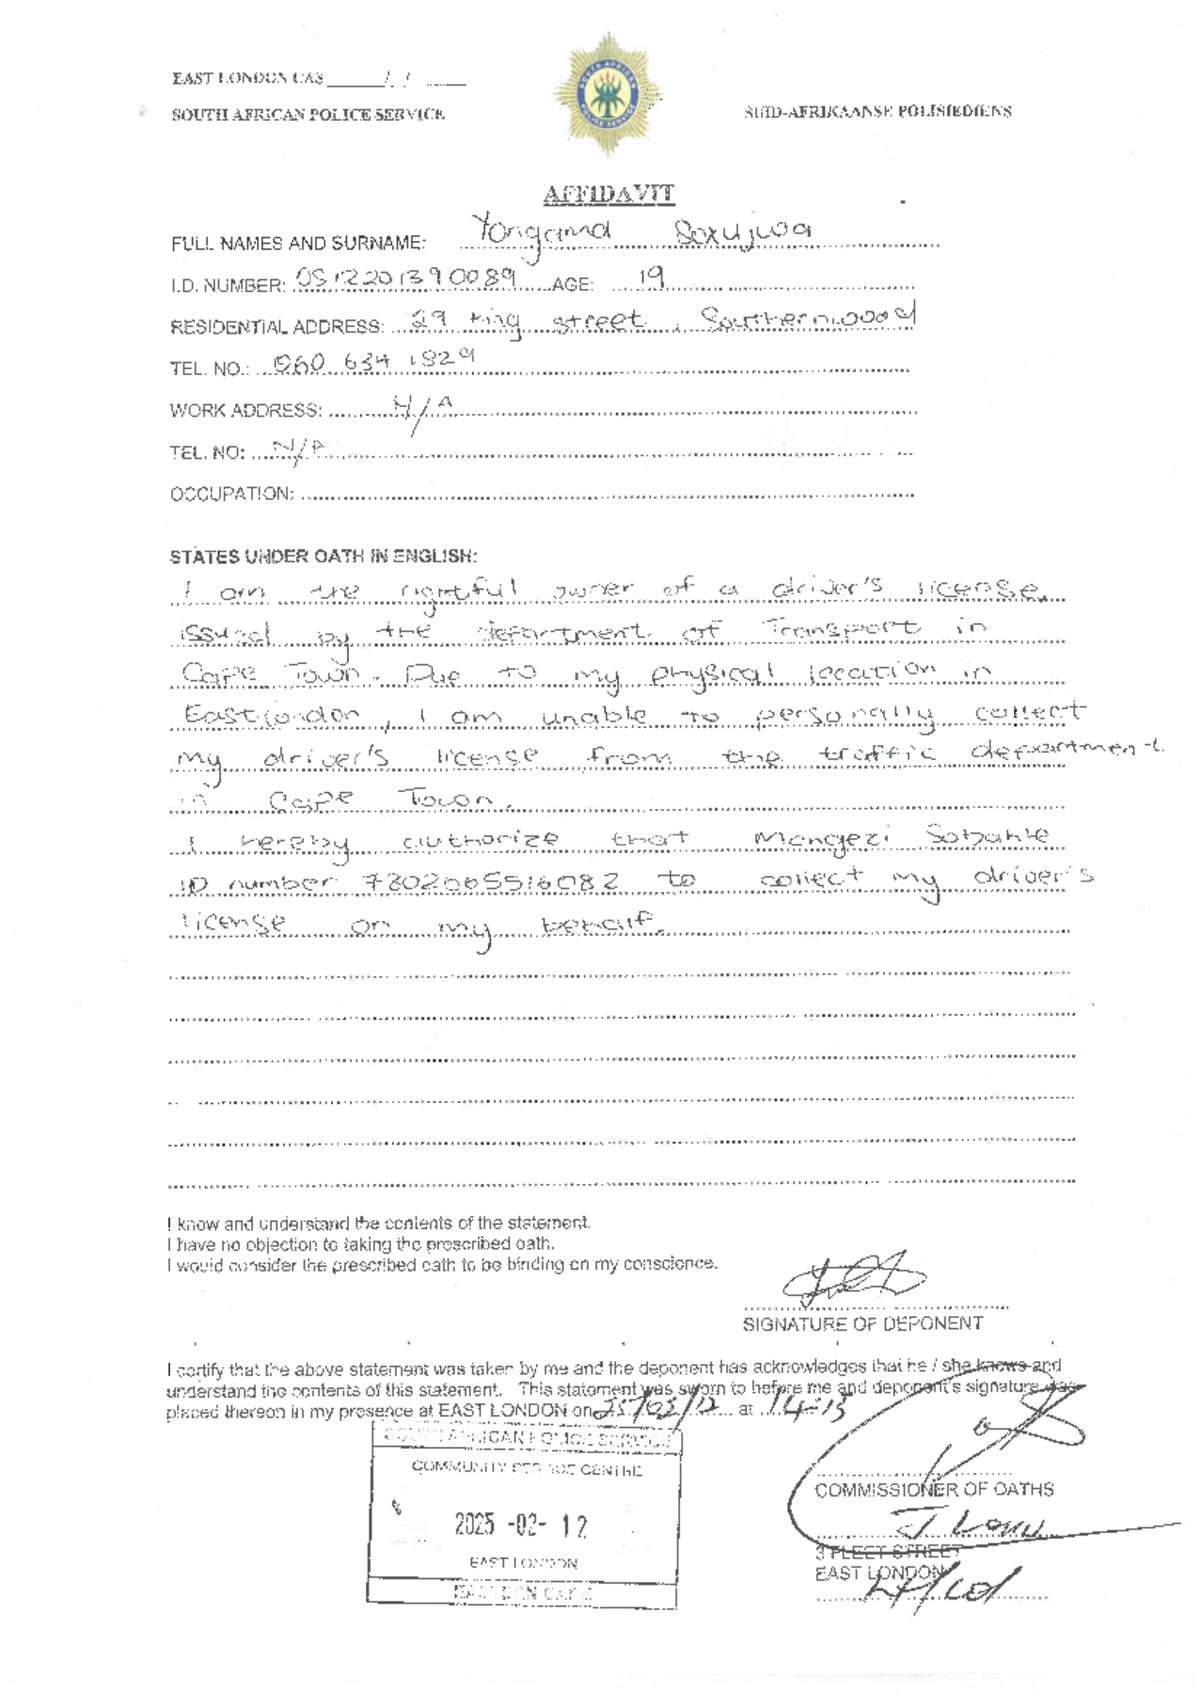 EAST LONDON CAS ______/ / ____
SOUTH AFRICAN POLICE SERVICE
SUID-AFRIKAANSE POLISIEDIENS
AFFIDAVIT
FULL NAMES AND SURNAME: Yongama Soxujwa
I.D. NUMBER: 0512201390089 AGE: 19
RESIDENTIAL ADDRESS: 29 King street, Southernwood
TEL. NO.: 060 634 1829
WORK ADDRESS: N/A
TEL. NO: N/A
OCCUPATION:
STATES UNDER OATH IN ENGLISH:
I am the rightful owner of a driver's license
issued by the department of Transport in
Cape Town. Due to my physical location in
East London, I am unable to personally collect
my driver's license from the traffic department
in Cape Town.
I hereby authorize that Mongezi Sobahle
ID number 7802065516082 to collect my driver's
license on my behalf.
I know and understand the contents of the statement.
I have no objection to taking the prescribed oath.
I would consider the prescribed oath to be binding on my conscience.
SIGNATURE OF DEPONENT
I certify that the above statement was taken by me and the deponent has acknowledges that he / she knows and
understand the contents of this statement. This statement was sworn to before me and deponent's signature was
placed thereon in my presence at EAST LONDON on 25/02/12 at 14-15
SOUTH AFRICAN POLICE SERVICE
COMMUNITY SERVICE CENTRE
2025 -02- 12
EAST LONDON
EASTERN CAPE
COMMISSIONER OF OATHS
3 FLEET STREET
EAST LONDON